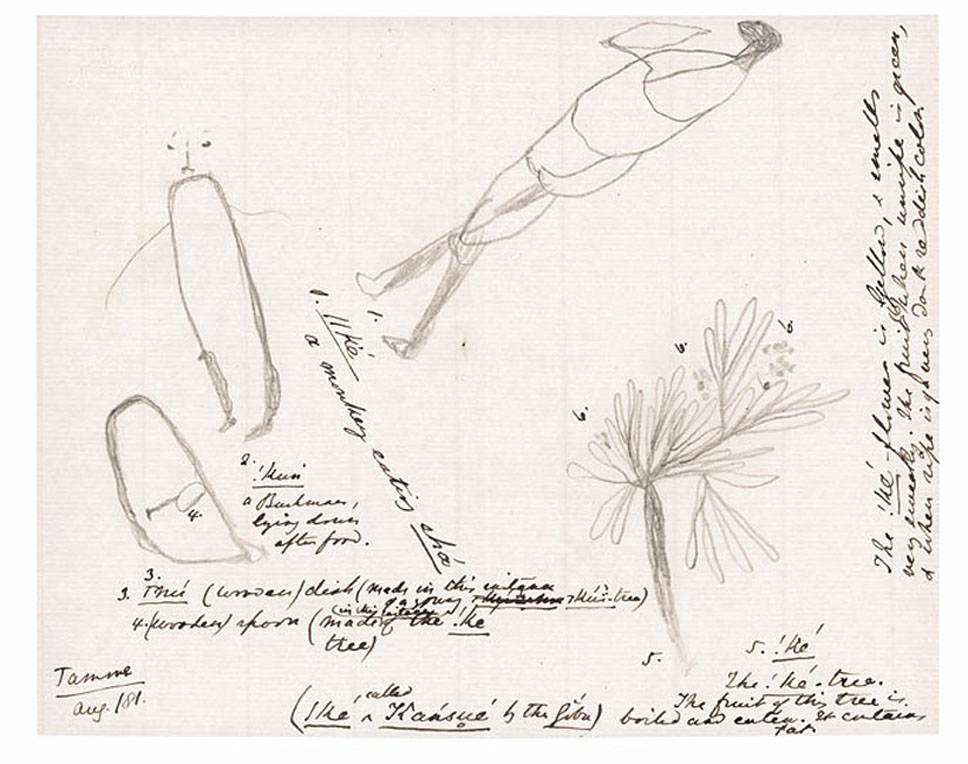 1. ǁké
a monkey eating shá
1.
2. !kuń
a Bushman,
lying down
after food.
4.
3.
3. (wooden) dish (made in this instance
tree)
4. (wooden) spoon (made of the !ké
(in this instance)
tree)
Tamme
Aug./81.
called
by the
6.
6.
6.
5.
5. !ké
The !ké-tree.
The fruit of this tree is
boiled and eaten. It contains
fat
The !ké flower is yellow, & smells
very sweetly. The fruit when unripe is green,
& when ripe is of dark reddish color